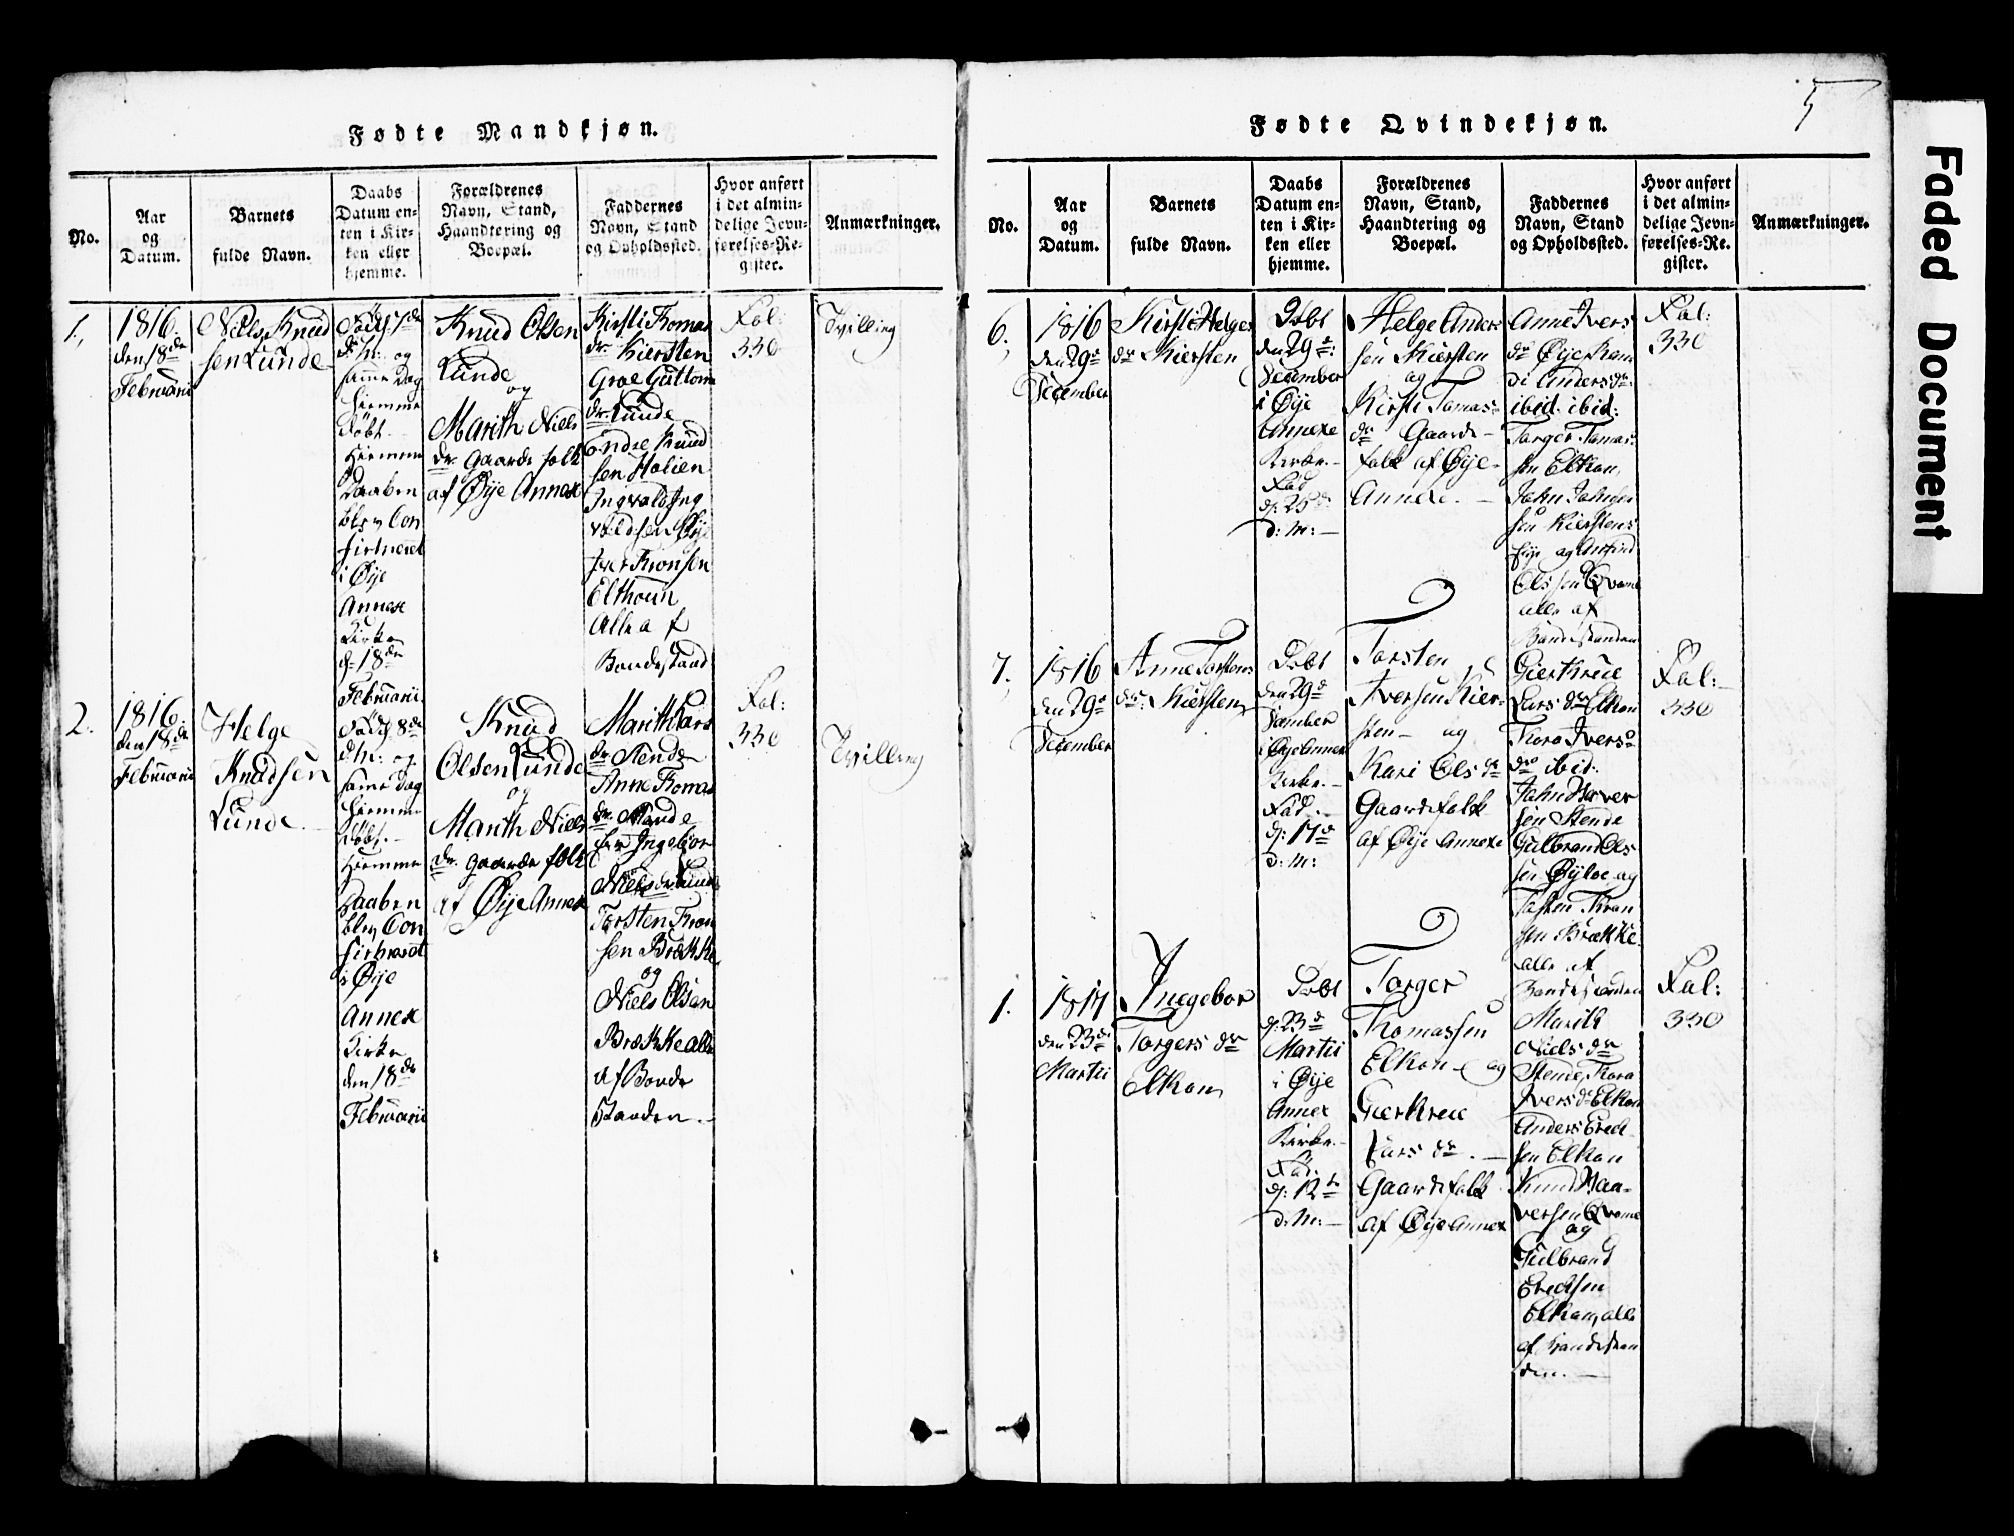 Fødte Mandkjøn.
No.
Aar
og
Datum.
Barnets
fulde Navn.
Daabs
Datum en-
ten i Kir-
ken eller
hjemme.
Forældrenes
Navn, Stand,
Haandtering og
Boepæl.
Faddernes
Navn, Stand
og Opholdssted.
Hvor anført
i det almin-
delige Jevn-
førelses-Re-
gister.
Anmærkninger.
1.
1816.
den 18de
Februarii
Niels Knud
sen Lunde
Død 17de
d: M: og
samme Dag
hiemme
døbt.
Hiemme
Daaben
blev Con
firmeret
i Øije
Annex
Kirke
d: 18de
Februarii.
Knud Olsen
Lunde
og
Marith Niels
dr. Gaardefolk
af Øije Annex
Kirsti Tomas
dr. Kiersten
Groe Guttorm
dr. Lunde
Endre Knud
sen Holien
Ingvald Ing
valdsen Øije
Iver Tronsen
Elthoun
Alle af
Bondestand
Fol:
330
Tvilling
2.
1816.
den 18de
Februarii
Helge
Knudsen
Lunde.
Fød 8de
d: M: og
samme Dag
hiemme
døbt.
Hiemme
Daaben
blev Con
firmeret
i Øije
Annex
Kirke
den 18de
Februarii
Knud
Olsen Lunde
og
Marith Niels
dr. Gaarde folk
af Øije Annex
Marith Lars
dr. Stende
Anne Tomas
dr.
Ingebor
Niels dr Lunde
Torsten Tron
sen Brække
og
Niels Olsen
Brække alle
af Bonde
Standen.
Fol:
330
Tvilling
5
Fødte Qvindekjøn.
No.
Aar
og
Datum.
Barnets
fulde Navn.
Daabs
Datum en-
ten i Kir-
ken eller
hjemme.
Forældrenes
Navn, Stand,
Haandtering og
Boepæl.
Faddernes
Navn, Stand
og Opholdssted.
Hvor anført
i det almin-
delige Jevn-
førelses-Re-
gister.
Anmærkninger.
6.
1816
den 29d
December
Kirsti Helges
dr Kiersten
Døbt
den 29d:
December
i Øije
Annexe
Kirke.
Fød
d: 25d
d: M:
Helge Anders
sen Kiersten
og
Kirsti Tomas
dr Gaarde
folk af Øije
Annexe.
Anne Ivers
dr Øije Ran
di Anders dr.
ibid. ibid:
Torger Tomas
sen Elthon,
John Johnse
sen Kierstens
Eije og Arnfind
Olssen Qvame
alle af
Bondestanden
Fol:
330
7.
1816
den 29d
December
Anne Torstens
dr: Kiersten
Døbt
den 29d
December
i Øije Annex
Kirke.
Fød.
d: 17d
d: M:
Torsten
Iversen Kier
sten og
Kari Ols dr
Gaardefolk
af Øije Annexe
Giertrue
Lars dr Elthon
Thora Ivers
dr ibid:
John Haver
sen Stende
Gulbrand Ols
sen Øyloe og
Tosten Tron
sen Brække
alle af
Bondestanden
Fol:
330
1.
1817
den 23d
Martii
Ingebor
Torgers dr
Elthon,
Døbt
d: 23d
Martii
i Øije
Annex
Kirke.
Fød.
d: 12t
d: M:
Torger
Thomassen
Elthon og
Giertrue
Lars dr.
Gaardefolk
af Øije Annex
Marith
Niels dr
Stende, Thora
Ivers dr Elthon
Anders Erick
sen Elthon
Knud Haa
versen Qvame
og
Gulbrand
Ericksen
Elthon, alle
af Bondestan
den.
Fol:
330
Faded Document